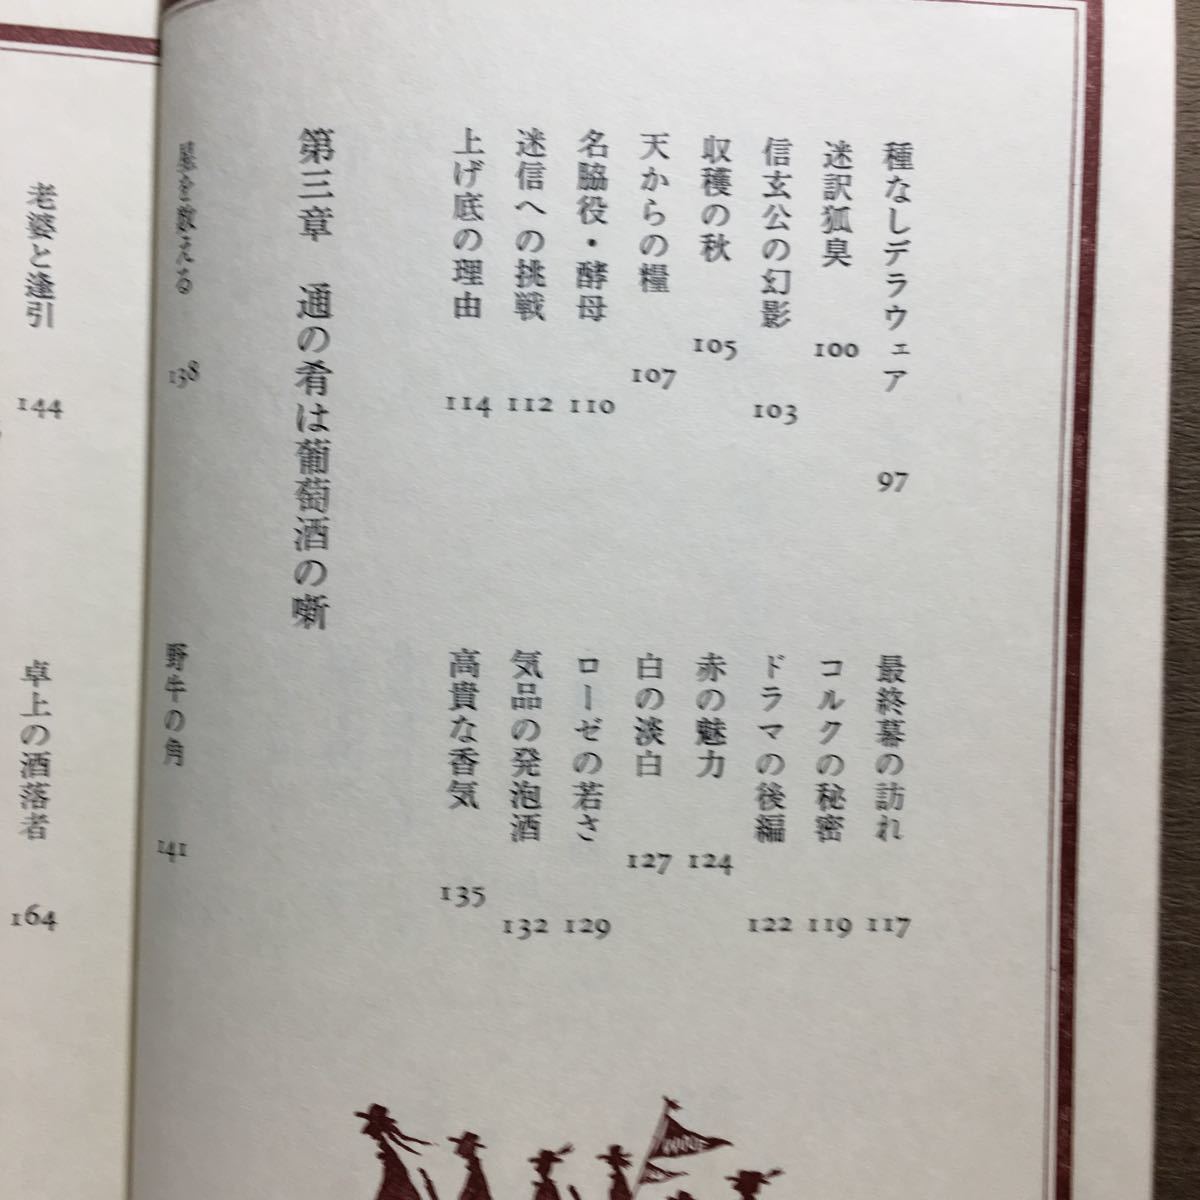 種なしデラウェア 97
迷訳狐臭 100
信玄公の幻影 103
収穫の秋 105
天からの糧 107
名脇役・酵母 110
迷信への挑戦 112
上げ底の理由 114
最終幕の訪れ 117
コルクの秘密 119
ドラマの後編 122
赤の魅力 124
白の淡白 127
ローゼの若さ 129
気品の発泡酒 132
高貴な香気 135
第三章 通の肴は葡萄酒の噺
を数える 138
野牛の角 141
老婆と逢引 144
卓上の洒落者 164
WINE